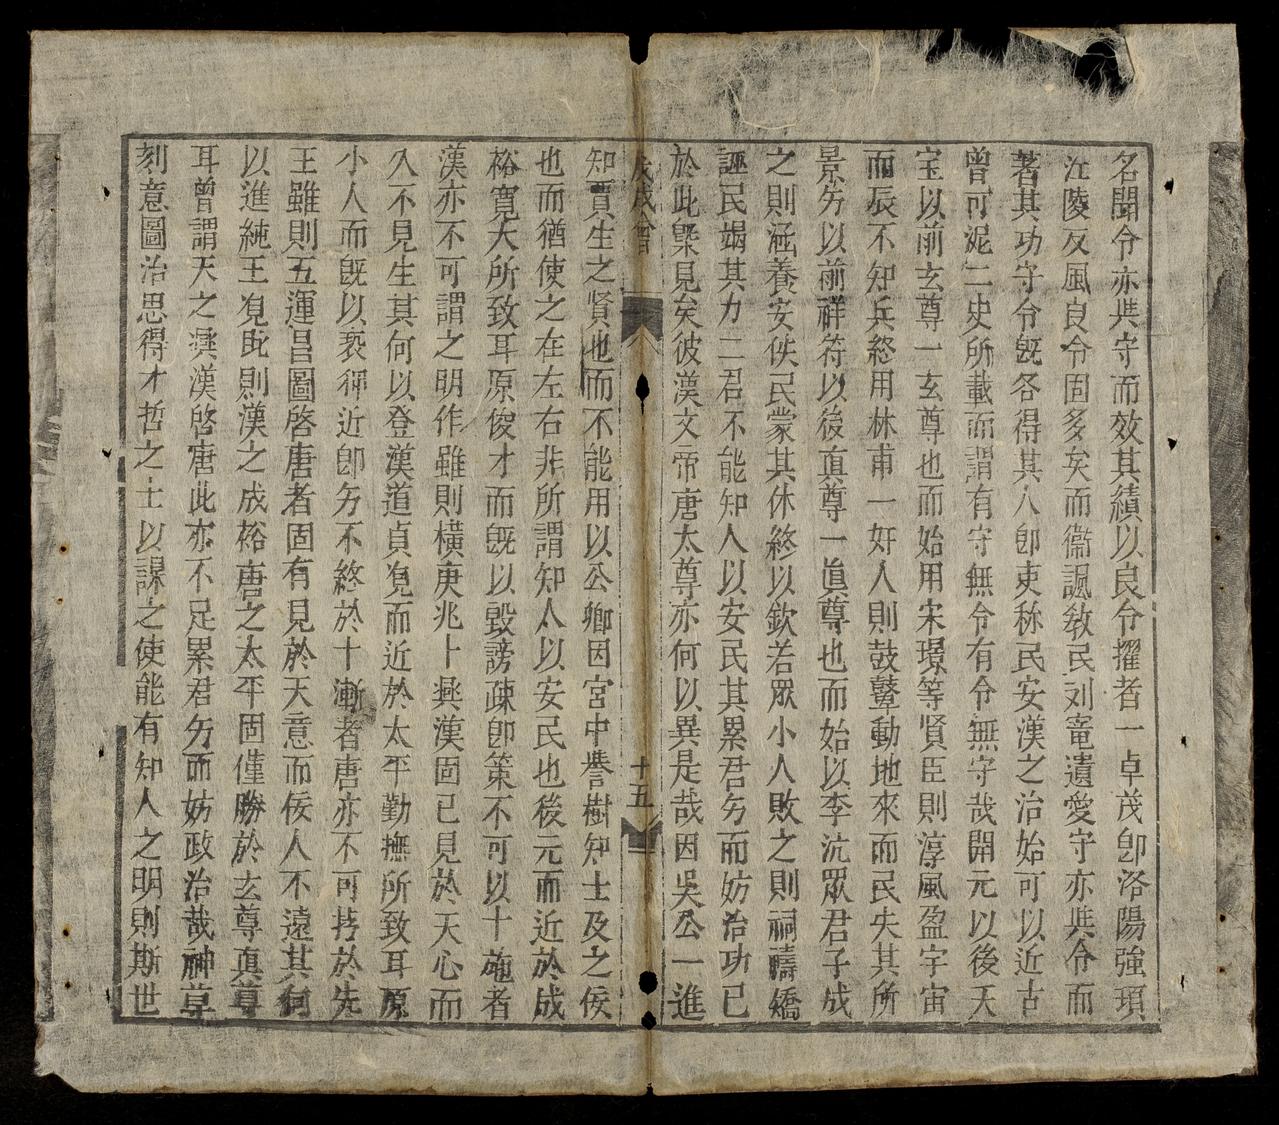 名聞令亦與守而效其績以良令擢者一卓茂卽洛陽強項
江陵反風良令固多矣而衞諷敎民刘竜遺愛守亦與令而
著其功守令旣各得其人卽吏称民安漢之治始可以近古
曾可泥二史所載而謂有守無令有令無守哉開元以後天
宝以前玄尊一玄尊也而始用宋璟等賢臣則淳風盈宇宙
而辰不知兵終用林甫一奸人則鼓鼙動地來而民失其所
景穷以前祥符以後眞尊一眞尊也而始以李沆眾君子成
之則涵養安佚民蒙其休終以欽若眾小人敗之則祠禱矯
誣民竭其力二君不能知人以安民其累君穷而妨治功已
於此槩見矣彼漢文帝唐太尊亦何以異是哉因吳公一進
戊戌會
十五
知賈生之賢也而不能用以公卿因宮中譽樹知士及之佞
也而猶使之在左右非所謂知人以安民也後元而近於成
裕寬大所致耳原俊才而旣以毀謗疎卽策不可以十施者
漢亦不可謂之明作雖則橫庚兆卜興漢固已見於天心而
入不見生其何以登漢道貞况而近於太平勤撫所致耳原
小人而旣以袞稱近卽穷不終於十漸者唐亦不可拷於先
王雖則五運昌圖啓唐者固有見於天意而佞人不遠其何
以進純王况此則漢之成裕唐之太平固僅勝於玄尊眞尊
耳曾謂天之興漢啓唐此亦不足累君穷而妨政治哉神草
刻意圖治思得才哲之士以課之使能有知人之明則斯世